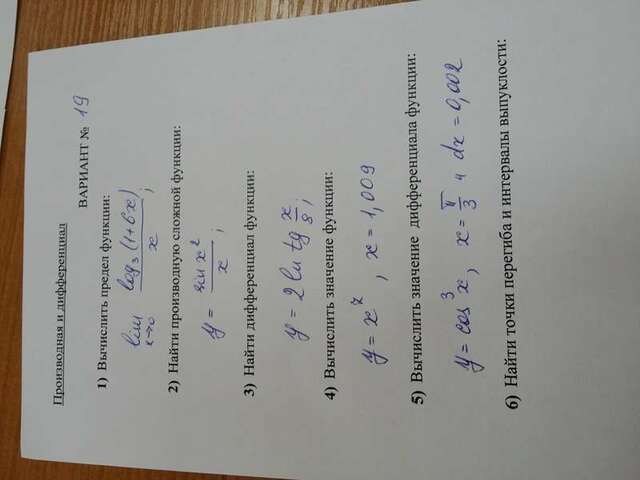 Производная и дифференциал
ВАРИАНТ № 19
1) Вычислить предел функции:
lim x→0 log₃(1+6x)/x ;
2) Найти производную сложной функции:
y = sin x²/x ;
3) Найти дифференциал функции:
y = 2 ln tg x/8 ;
4) Вычислить значение функции:
y = x⁷, x = 1,009
5) Вычислить значение дифференциала функции:
y = cos³x, x = π/3 и dx = 0,002
6) Найти точки перегиба и интервалы выпуклости: